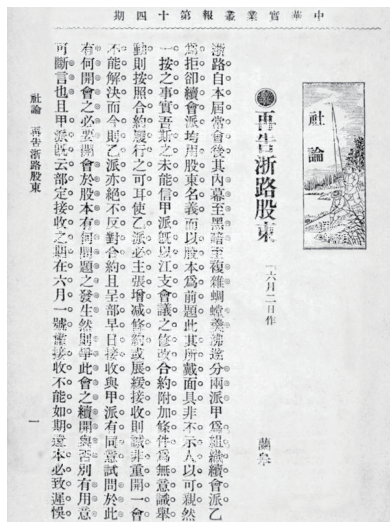 中華實業叢報第十四期
社論
再告浙路股東
六月二日作
蘭皋
浙路自本屆常會後其內幕至黑暗至複雜蜩螗羹沸遂分兩派甲爲組織續會派乙
爲拒卻續會派均用股東名義而以股本爲前題此其所戴面具非不示人以可親然
一按之事實吾斯之未能信甲派旣以江支會議之修改合約附加條件爲無意識舉
動則按照合約履行之可耳使乙派必主張增減條約或展緩接收則誠非重開一會
不能解決而今則乙派亦絕不反對合約且呈部早日接收與甲派有同意試問於此
有何開會之必要開會於股本有何問題之發生然則爭此會之續開與否別有用意
可斷言也且甲派旣云部定接收之期在六月一號慮接收不能如期還本必致遲悞
社論 再告浙路股東
一